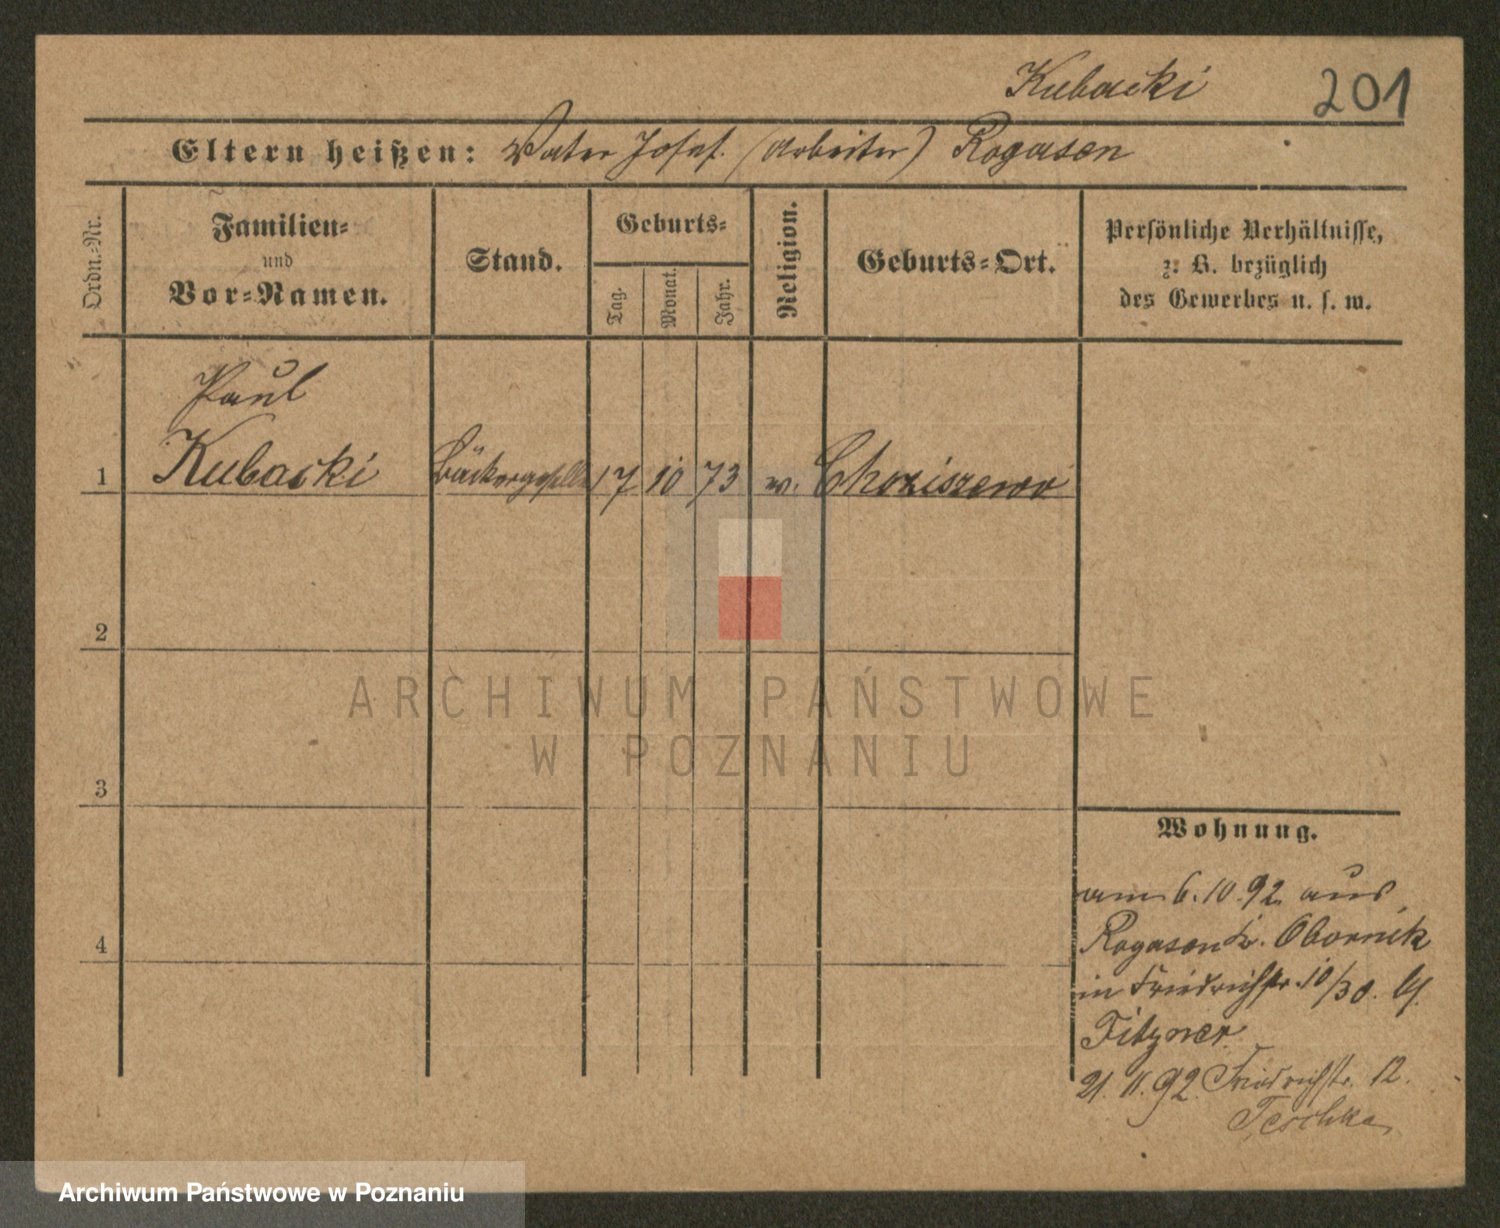 Kubacki 201
Eltern heißen: Vater Josef. (Arbeiter) Rogasen
Ordn.-Nr.
Familien-
und
Vor-Namen.
Stand.
Geburts-
Tag.
Monat.
Jahr.
Religion.
Geburts-Ort.
Persönliche Verhältnisse,
z. B. bezüglich
des Gewerbes u. s. w.
Paul
1 Kubacki Bäckergeselle 17 10 73 Choziszewo
2
3
4
Wohnung.
am 6.10.92 aus
Rogasen Kr. Obornik
in Friedrichstr. 10/30. bei
Fitzner
21.11.92. Friedrichstr. 12.
Teschke
ARCHIWUM PAŃSTWOWE
W POZNANIU
Archiwum Państwowe w Poznaniu